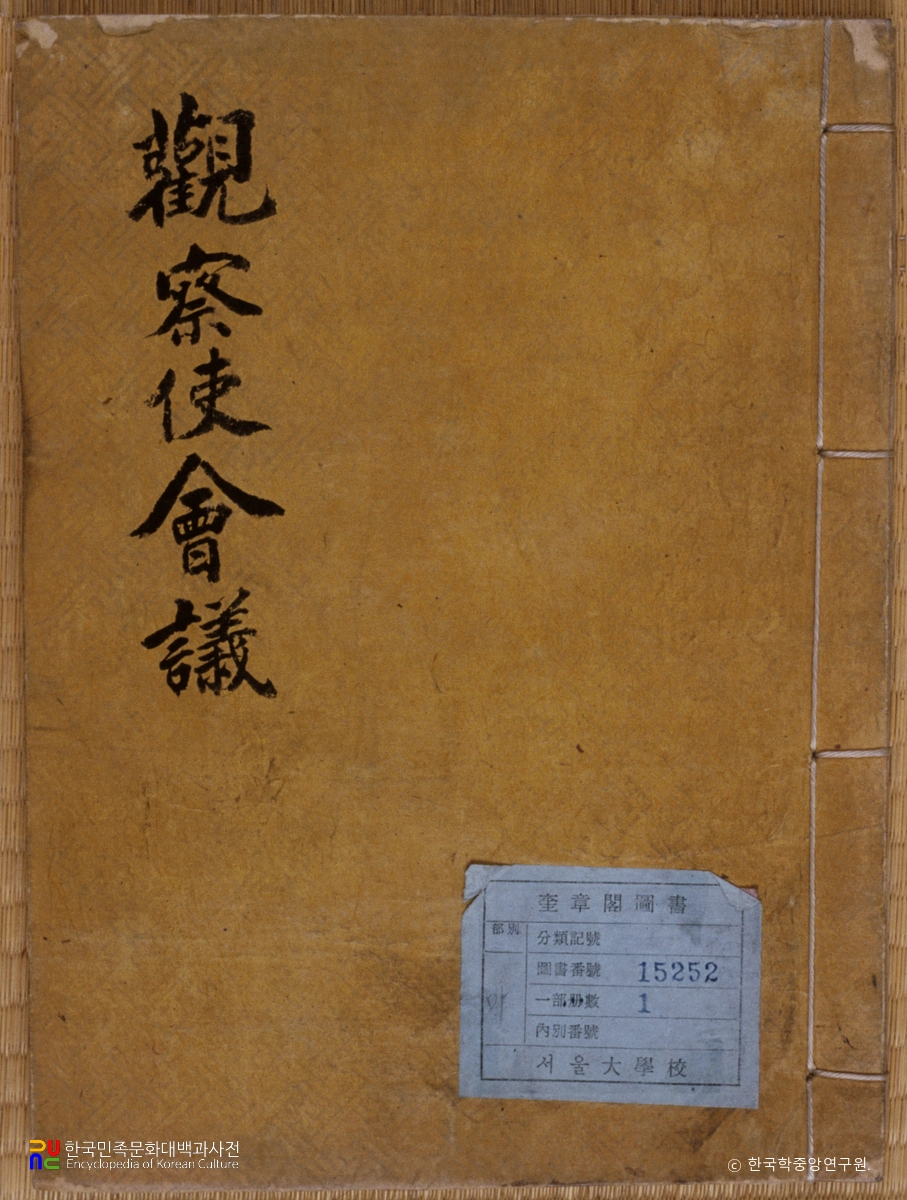 觀察使會議
奎章閣圖書
部別
分類記號
圖書番號 15252
一部冊數 1
內別番號
서울大學校
한국민족문화대백과사전
Encyclopedia of Korean Culture
© 한국학중앙연구원.